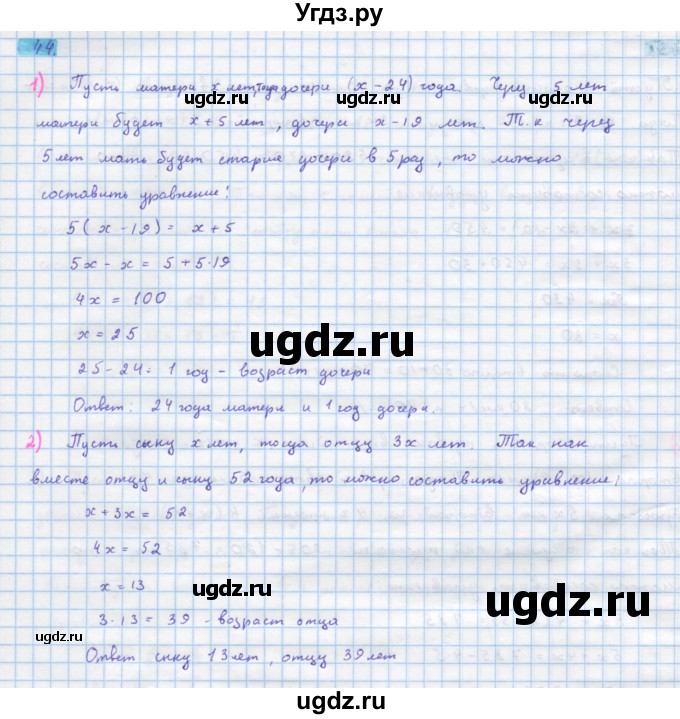 Угдз.ру
44.
1) Пусть матери x лет, тогда дочери (x-24) года. Через 5 лет
ugdz.ru ugdz.ru ugdz.ru
матери будет x+5 лет, дочери x-19 лет. Т.к через
5 лет мать будет старше дочери в 5 раз, то можно
составить уравнение:
5(x-19) = x+5
5x-x = 5+5·19
4x = 100
ugdz.ru
x = 25
25-24= 1 год - возраст дочери
Ответ: 24 года матери и 1 год дочери.
2) Пусть сыну x лет, тогда отцу 3x лет. Так как
вместе отцу и сыну 52 года, то можно составить уравнение:
x+3x = 52
4x = 52
x = 13
ugdz.ru
ugdz.ru
3·13 = 39 - возраст отца
ugdz.ru
Ответ сыну 13 лет, отцу 39 лет
ugdz.ru